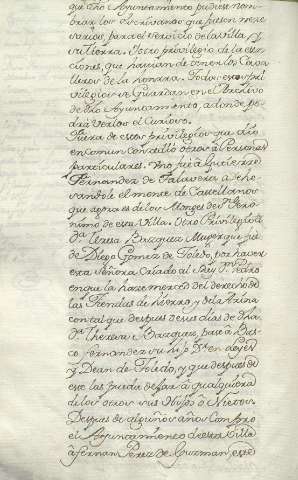 que dho Ayuntamiento pudiese nom
brar los Escrivanos que fuesen nece
sarios para el servicio de la Villa, y
su tierra. Y otro privilegio de la esen
ciones, que havian de tener los Cava
lleros de la nomina. Todos estos pri
vilegios se Guardan en el Archivo
de dho Ayuntamiento, adonde po
drá verlos el Curioso.
Fuera de estos privilegios que dió
en comun concedió otros á Personas
particulares. Uno fué á Gutierre
Fernandez de Talavera dando
le el monte de Castellanos
que agora es de los Monges de Sn. Gero
nimo de esta Villa. Otro Privilegio á
Da. Teresa Bazquez Muger que fué
de Diego Gomez de Toledo, por haver
esta Señora Criado al Rey Dn. Pedro
en que la hace merced del derecho de
las Tiendas de hierro, y de la Arina
con tal que despues de sus dias de dha
Da. Theresa Bazquez, pase á Bas
co Fernandez su hijo
y Dean de Toledo, y que despues de
este las pueda dexar á qualquiera
de los otros sus Hijos ó Nietos.
Despues de algunos años Compro
el Ayuntamiento de esta Villa
á Fernan Perez de Guzman, este